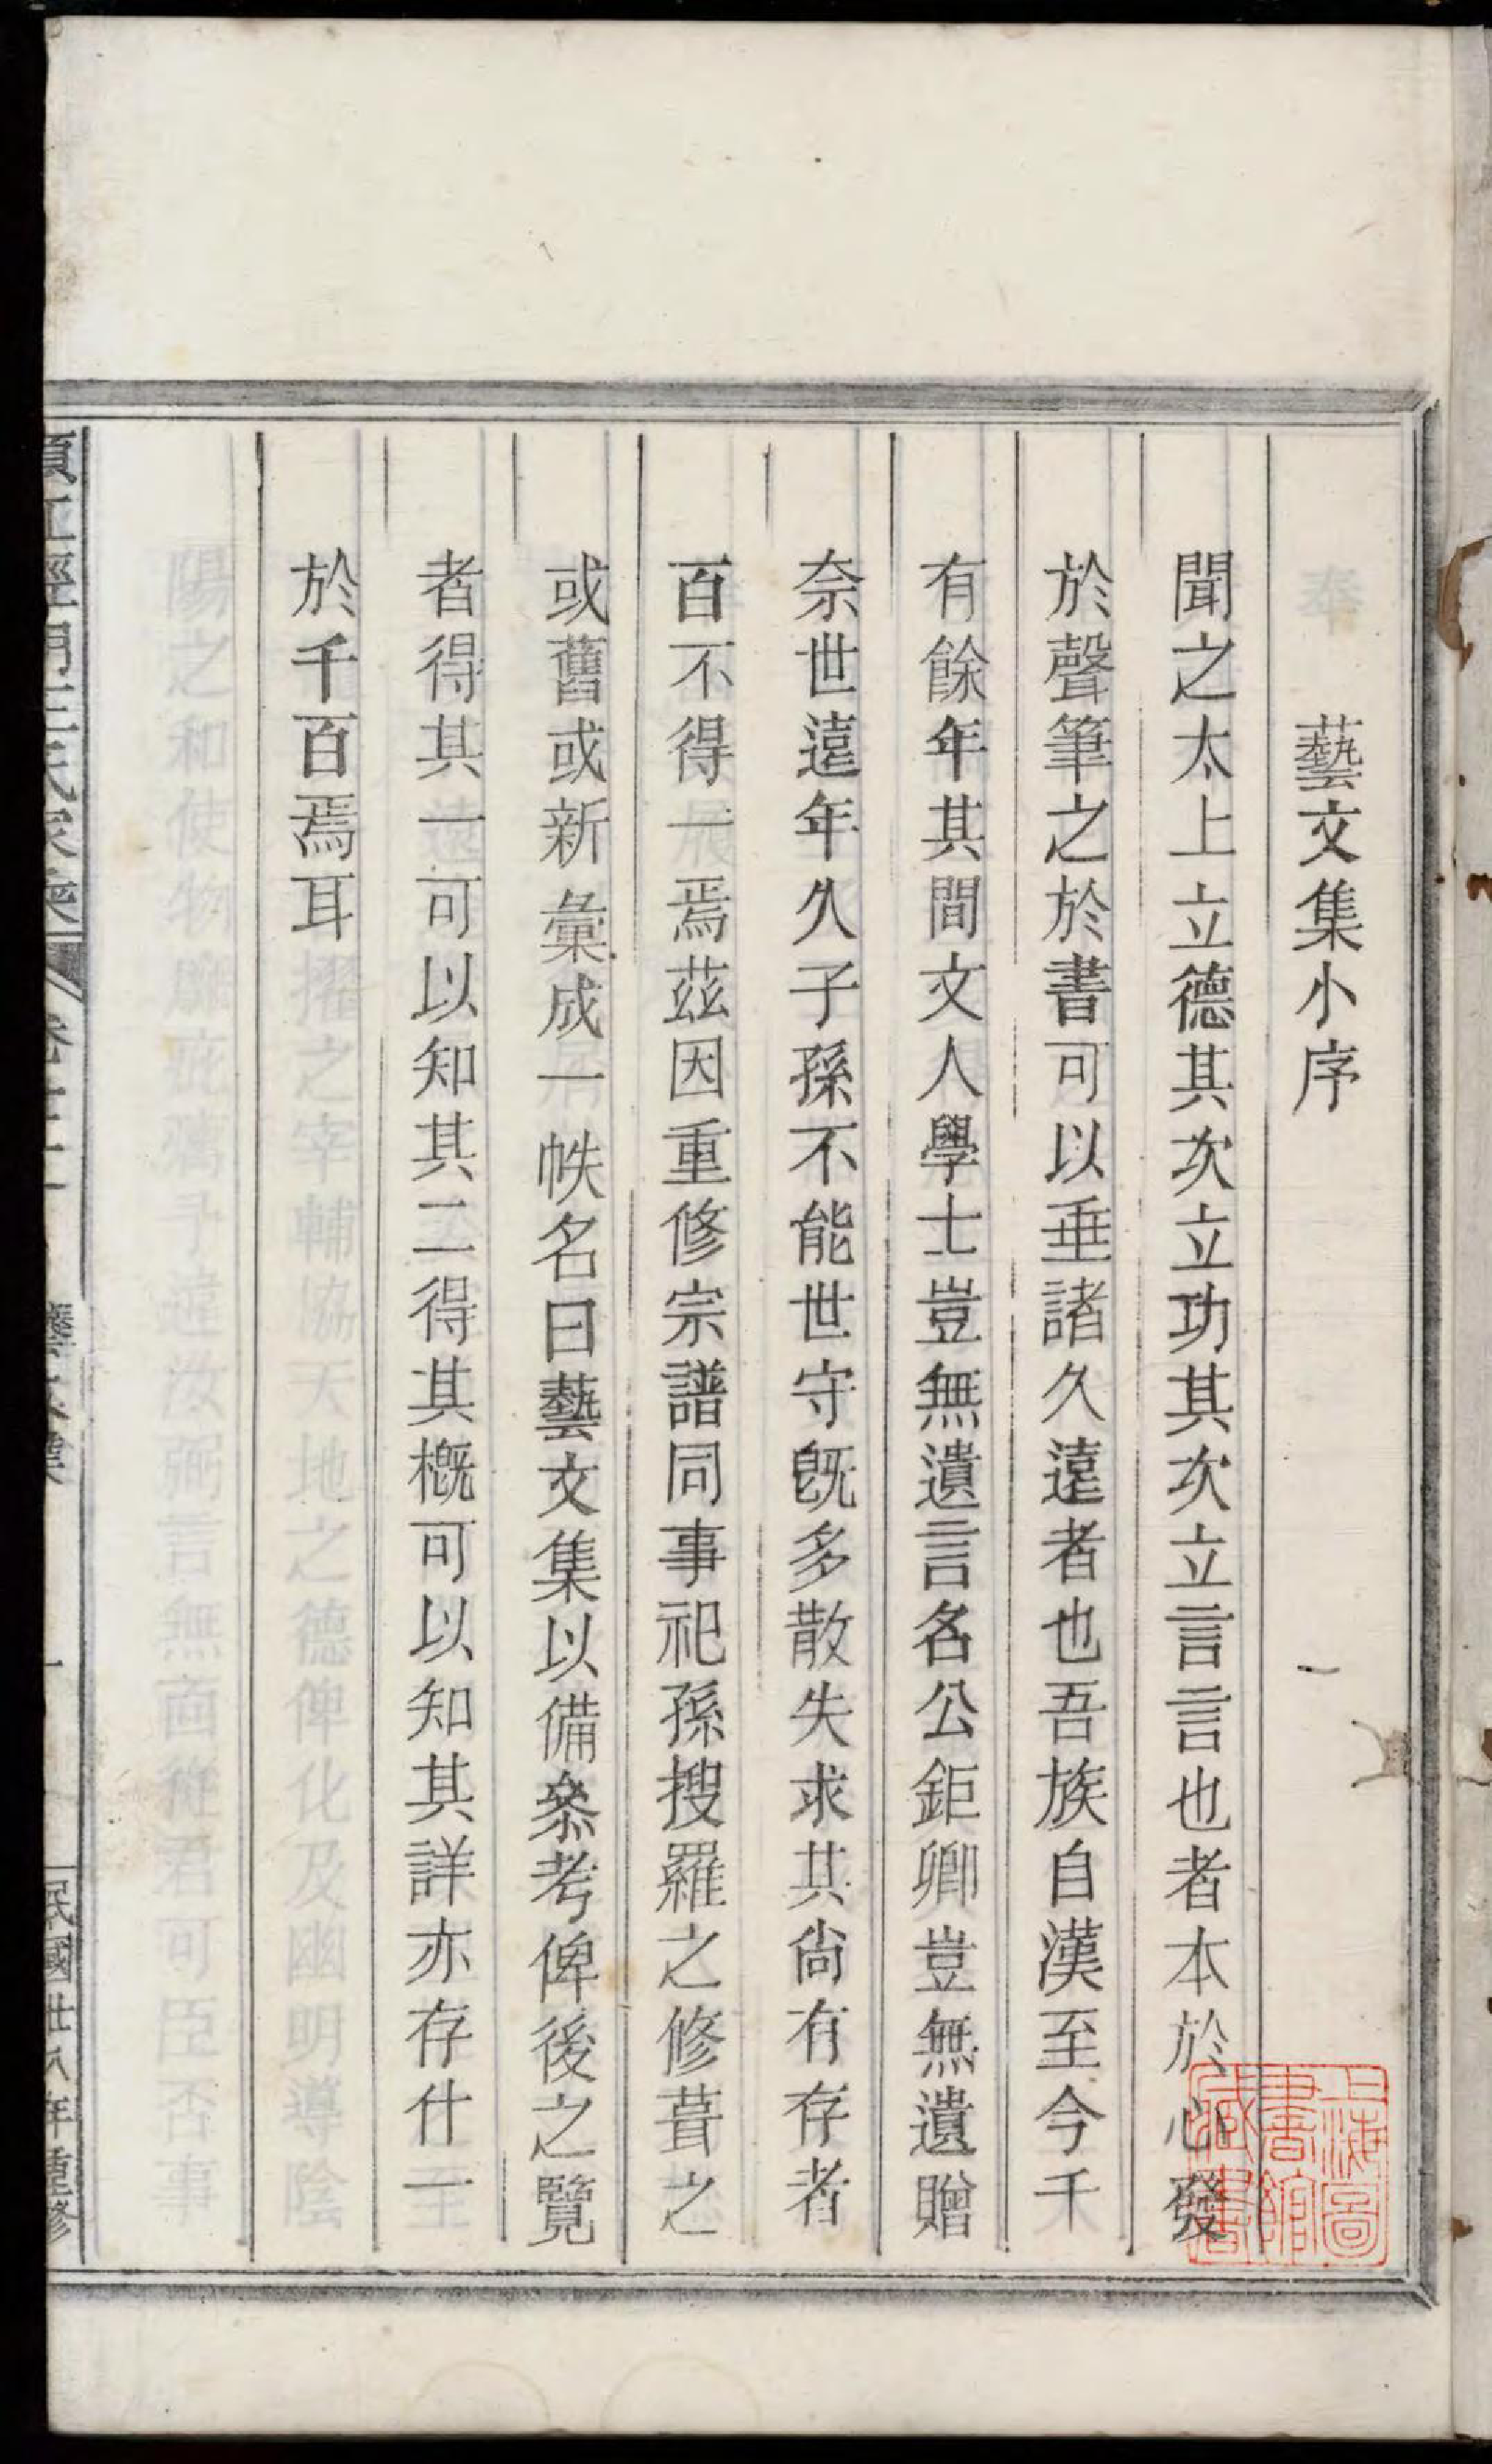 藝文集小序
聞之太上立德其次立功其次立言言也者本於心發
於聲筆之於書可以垂諸久遠者也吾族自漢至今千
有餘年其間文人學士豈無遺言名公鉅卿豈無遺贈
奈世遠年久子孫不能世守旣多散失求其尙有存者
百不得一焉茲因重修宗譜同事祀孫搜羅之修葺之
或舊或新彙成一帙名曰藝文集以備叅考俾後之覽
者得其一可以知其二得其概可以知其詳亦存什一
於千百焉耳
民國卅八年重修
上海圖書館藏書